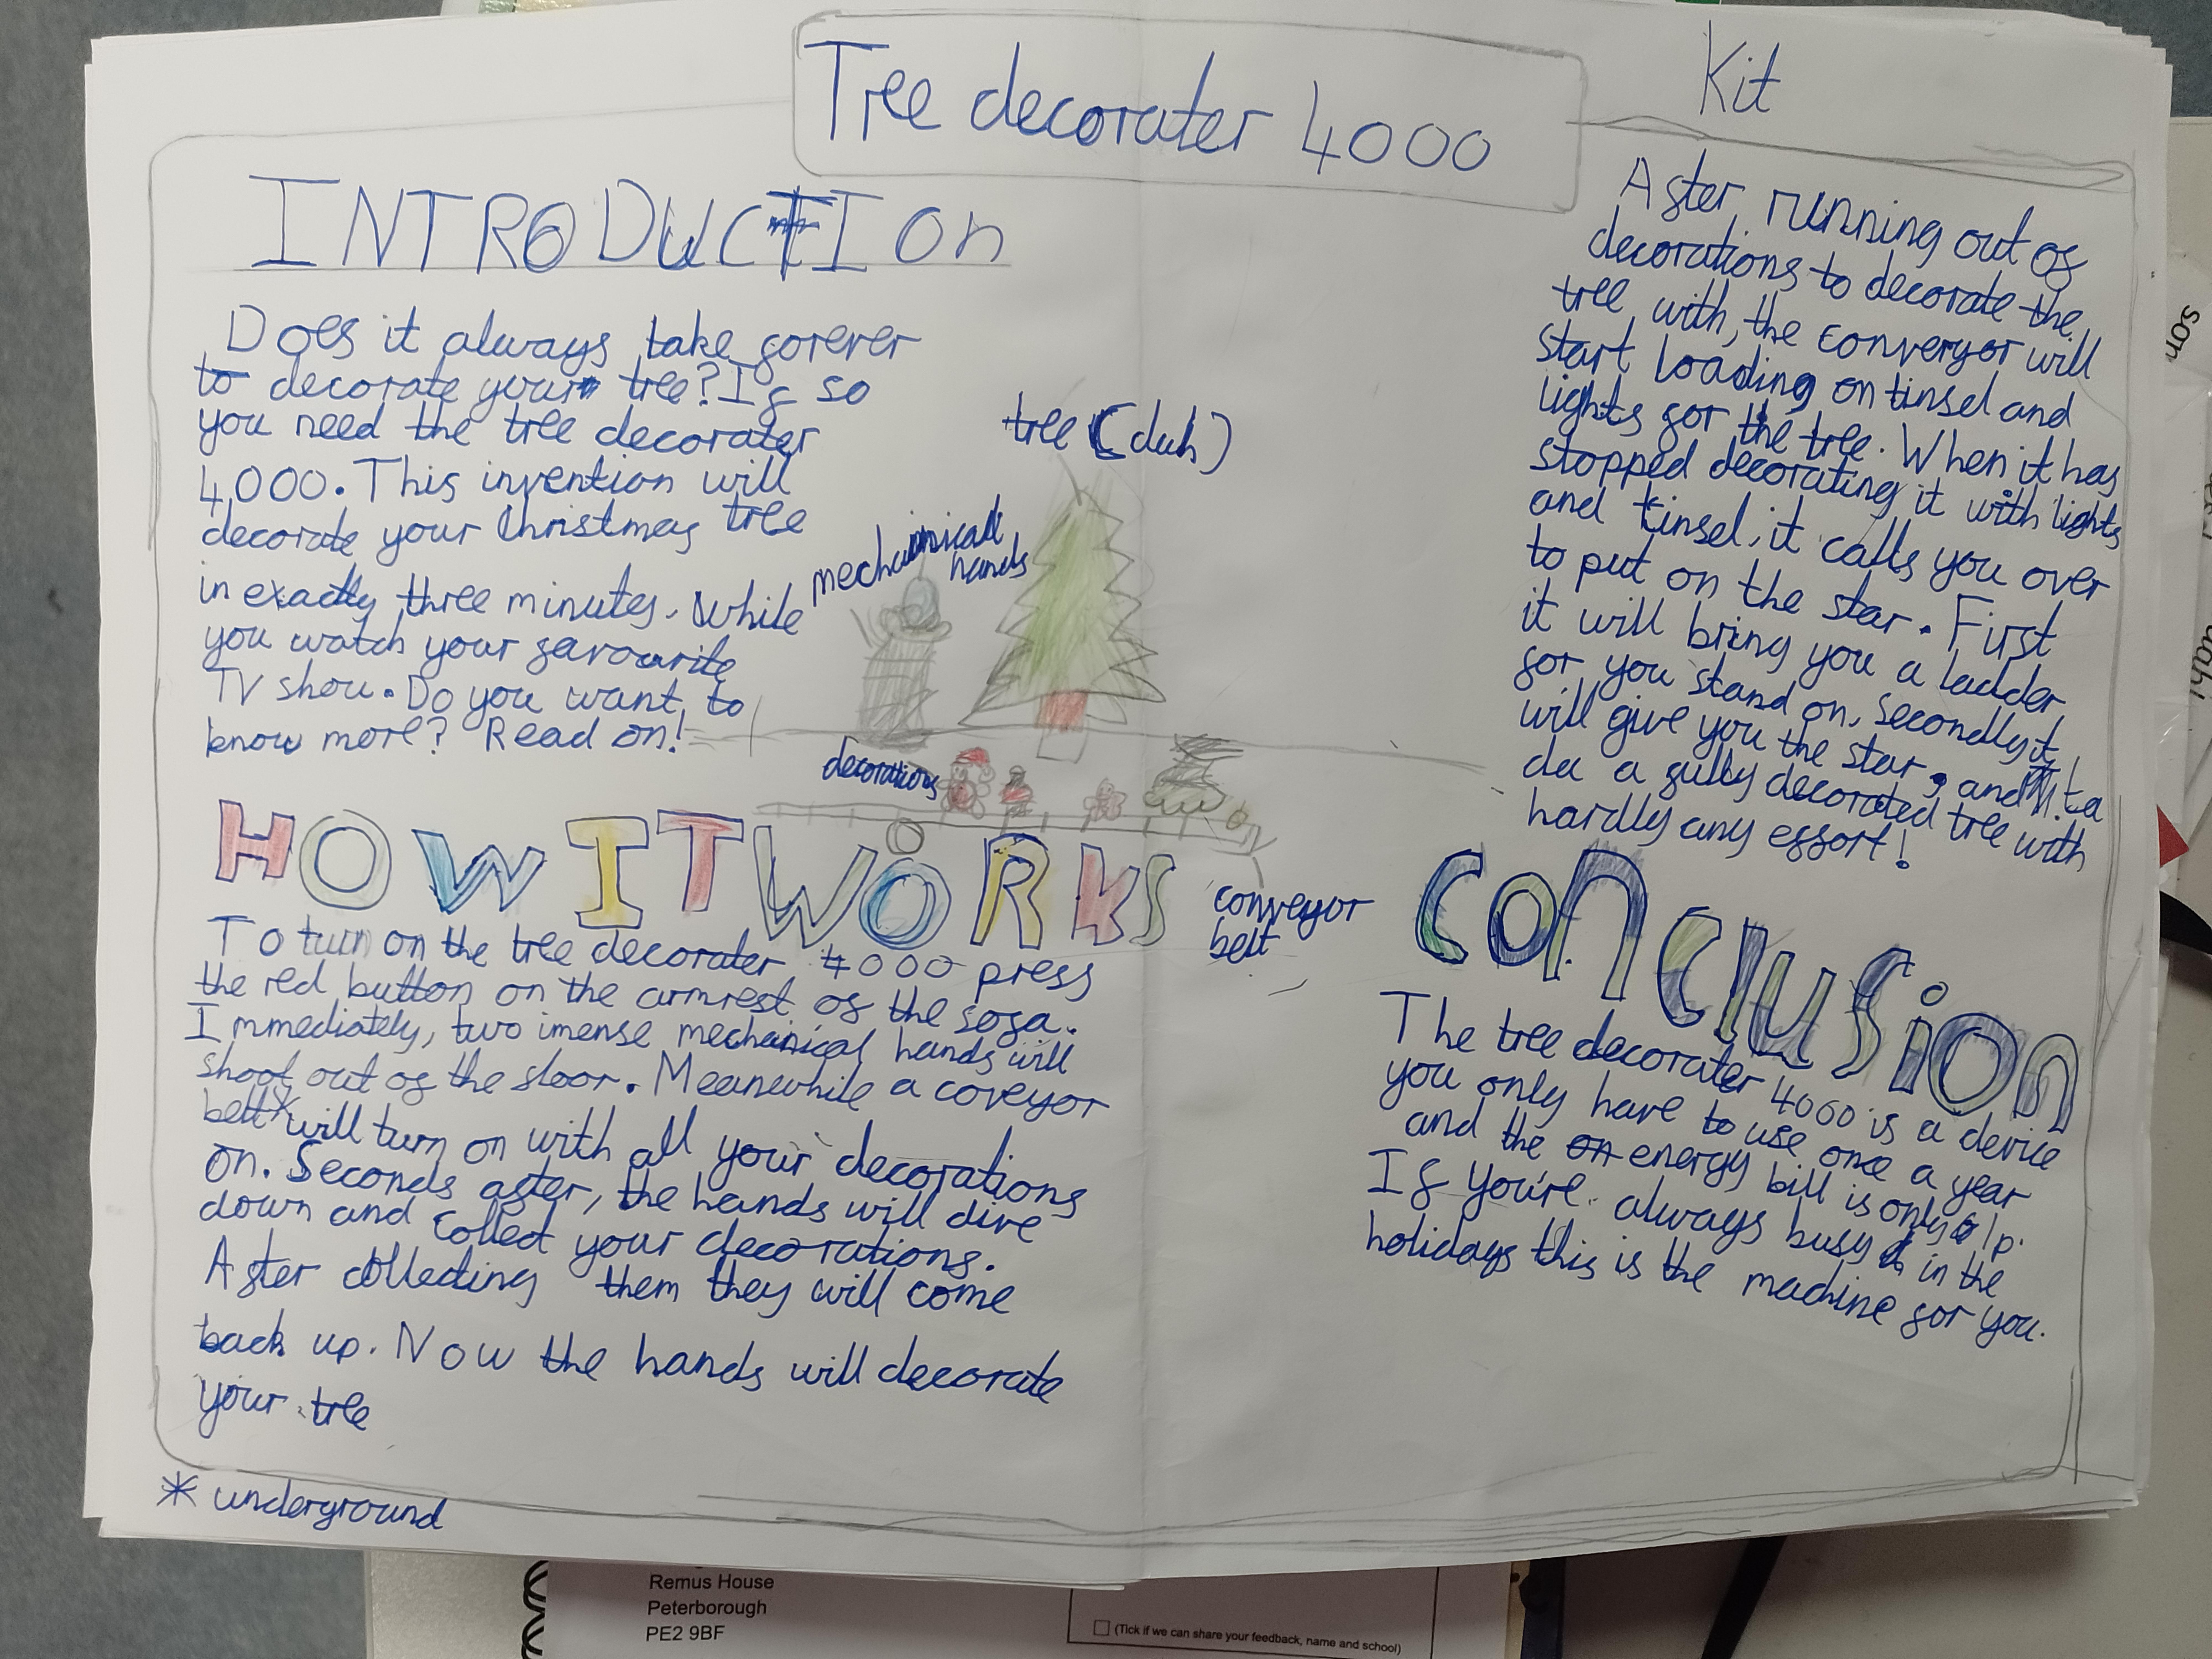 Tree decorater 4000
Kit
INTRODUCTIOn
Does it always take forever
to decorate your tree? If so
you need the tree decorater
4,000. This invention will
decorate your Christmas tree
in exactly three minutes. While
you watch your favourite
TV show. Do you want to
know more? Read on!
tree (duh)
mechanical
hands
decorations
conveyor
belt
HOW IT WORKS
To turn on the tree decorater 4000 press
the red button on the armrest of the sofa.
Immediately, two imense mechanical hands will
shoot out of the floor. Meanwhile a coveyor
belt* will turn on with all your decorations
on. Seconds after, the hands will dive
down and collect your decorations.
After collecting them they will come
back up. Now the hands will decorate
your tree
* underground
After running out of
decorations to decorate the
tree with, the converyor will
start loading on tinsel and
lights for the tree. When it has
stopped decorating it with lights
and tinsel, it calls you over
to put on the star. First
it will bring you a ladder
for you stand on, secondly it
will give you the star, and ta
da a fully decorated tree with
hardly any effort!
conclusion
The tree decorater 4000 is a device
you only have to use once a year
and the energy bill is only 1p.
If you're always busy in the
holidays this is the machine for you.
Remus House
Peterborough
PE2 9BF
(Tick if we can share your feedback, name and school)
son